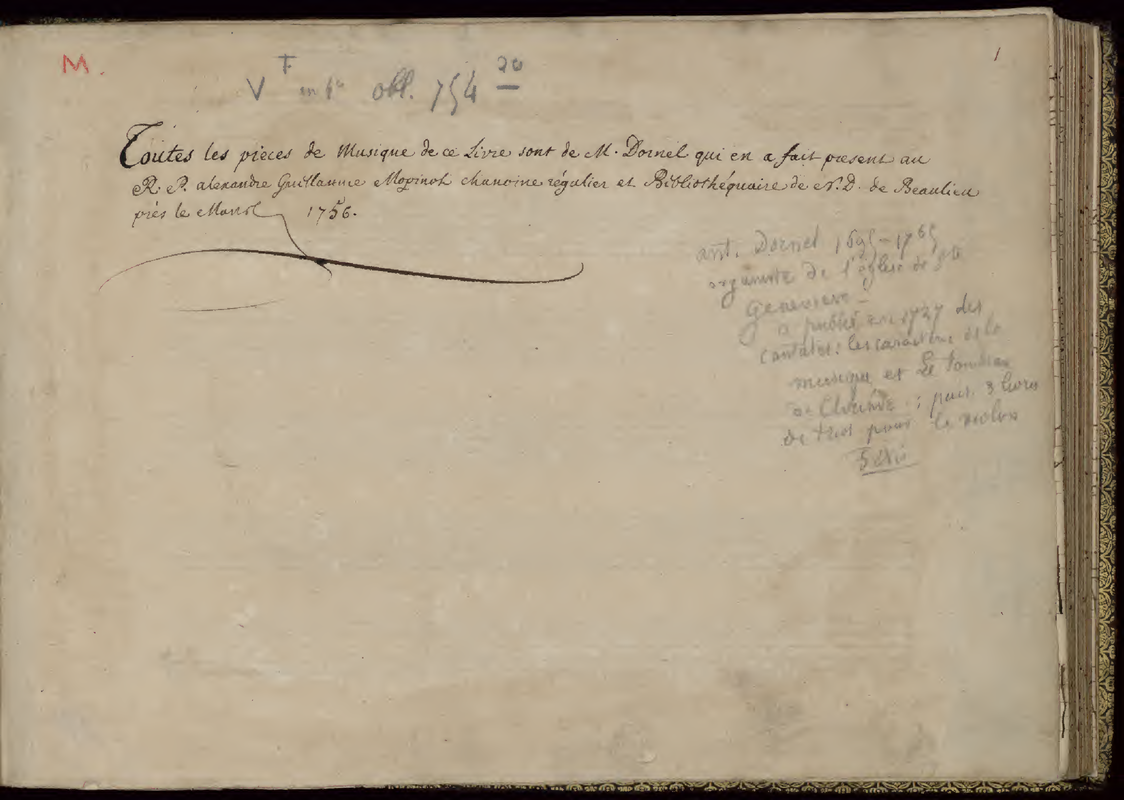 M.
1
V F in 4° obl. 754 20
Toutes les pieces de Musique de ce Livre sont de M. Dornel qui en a fait present au
R. P. alexandre Guillaume Mopinot chanoine régulier et Bibliothéquaire de N. D. de Beaulieu
près le 1756.
ant. Dornel 1695 – 1765
organiste de l'église de Ste
Geneviève –
a publié en 1727 des
cantates : les caractères de la
musique et Le Tombeau
de Clorinde ; puis 3 livres
de trios pour le violon